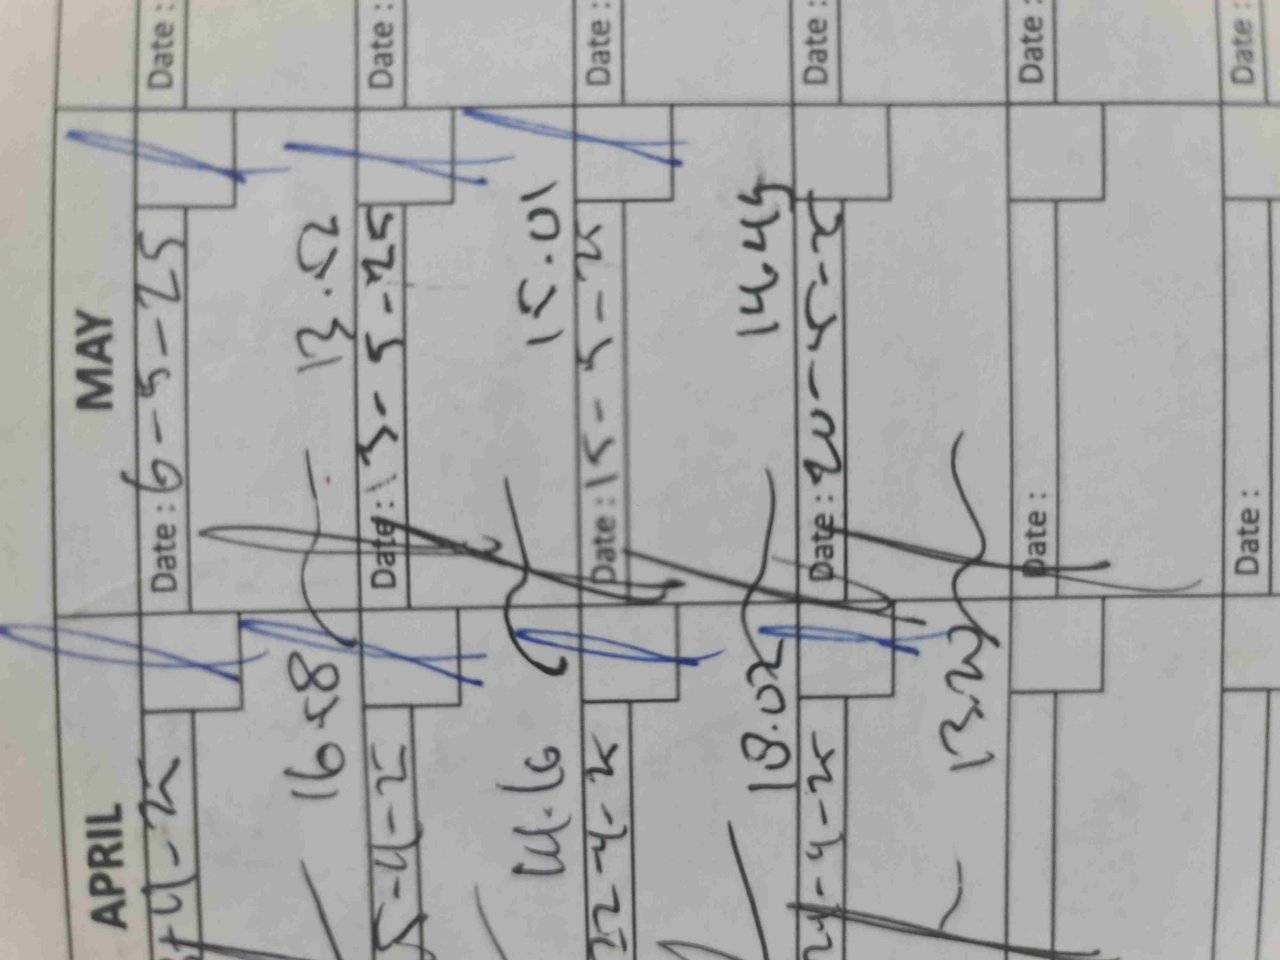 APRIL MAY
-4-25 Date: 6-5-25 Date:
16.58 13.52
5-4-25 Date: 13-5-25 Date:
14.16 15.01
22-4-25 Date: 15-5-25 Date:
18.02 14.45
24-4-25 Date: 20-5-25 Date:
Date: Date:
Date: Date: